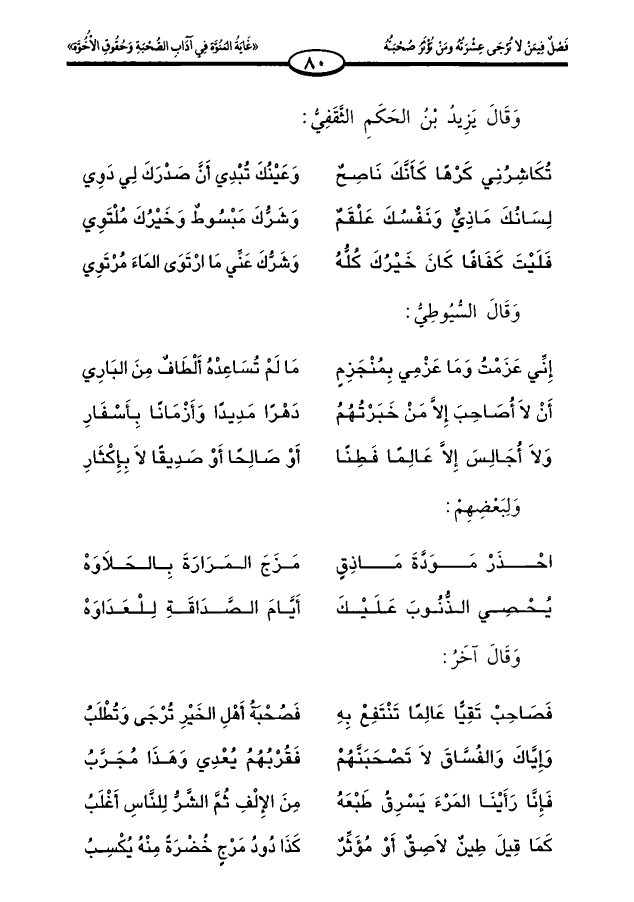 فَصْلٌ فِيمَنْ لا تُرْجَى عِشْرَتُهُ وَمَنْ تُؤْثَرُ صُحْبَتُهُ «غَايَةُ المُنُوَّة فِي آدَابِ الصُّحْبَةِ وَحُقُوقِ الأُخُوَّة»
٨٠
وَقَالَ يَزِيدُ بْنُ الحَكَمِ الثَّقَفِيُّ :
تُكَاشِرُنِي كَرْهًا كَأَنَّكَ نَاصِحٌ وَعَيْنُكَ تُبْدِي أَنَّ صَدْرَكَ لِي دَوِي
لِسَانُكَ مَاذِيٌّ وَنَفْسُكَ عَلْقَمٌ وَشَرُّكَ مَبْسُوطٌ وَخَيْرُكَ مُلْتَوِي
فَلَيْتَ كَفَافًا كَانَ خَيْرُكَ كُلُّهُ وَشَرُّكَ عَنِّي مَا ارْتَوَى المَاءَ مُرْتَوِي
وَقَالَ السُّيُوطِيُّ :
إِنِّي عَزَمْتُ وَمَا عَزْمِي بِمُنْجَزِمٍ مَا لَمْ تُسَاعِدْهُ أَلْطَافٌ مِنَ البَارِي
أَنْ لاَ أُصَاحِبَ إِلاَّ مَنْ خَبَرْتُهُمُ دَهْرًا مَدِيدًا وَأَزْمَانًا بِأَسْفَارِ
وَلاَ أُجَالِسَ إِلاَّ عَالِمًا فَطِنًا أَوْ صَالِحًا أَوْ صَدِيقًا لاَ بِإِكْثَارِ
وَلِبَعْضِهِمْ :
احْذَرْ مَوَدَّةَ مَاذِقٍ مَزَجَ المَرَارَةَ بِالحَلاَوَهْ
يُحْصِي الذُّنُوبَ عَلَيْكَ أَيَّامَ الصَّدَاقَةِ لِلْعَدَاوَهْ
وَقَالَ آخَرُ :
فَصَاحِبْ تَقِيًّا عَالِمًا تَنْتَفِعْ بِهِ فَصُحْبَةُ أَهْلِ الخَيْرِ تُرْجَى وَتُطْلَبُ
وَإِيَّاكَ وَالفُسَّاقَ لاَ تَصْحَبَنَّهُمْ فَقُرْبُهُمُ يُعْدِي وَهَذَا مُجَرَّبُ
فَإِنَّا رَأَيْنَا المَرْءَ يَسْرِقُ طَبْعَهُ مِنَ الإِلْفِ ثُمَّ الشَّرُّ لِلنَّاسِ أَغْلَبُ
كَمَا قِيلَ طِينٌ لاَصِقٌ أَوْ مُؤَثِّرٌ كَذَا دُودُ مَرْجٍ خُضْرَةً مِنْهُ يُكْسِبُ